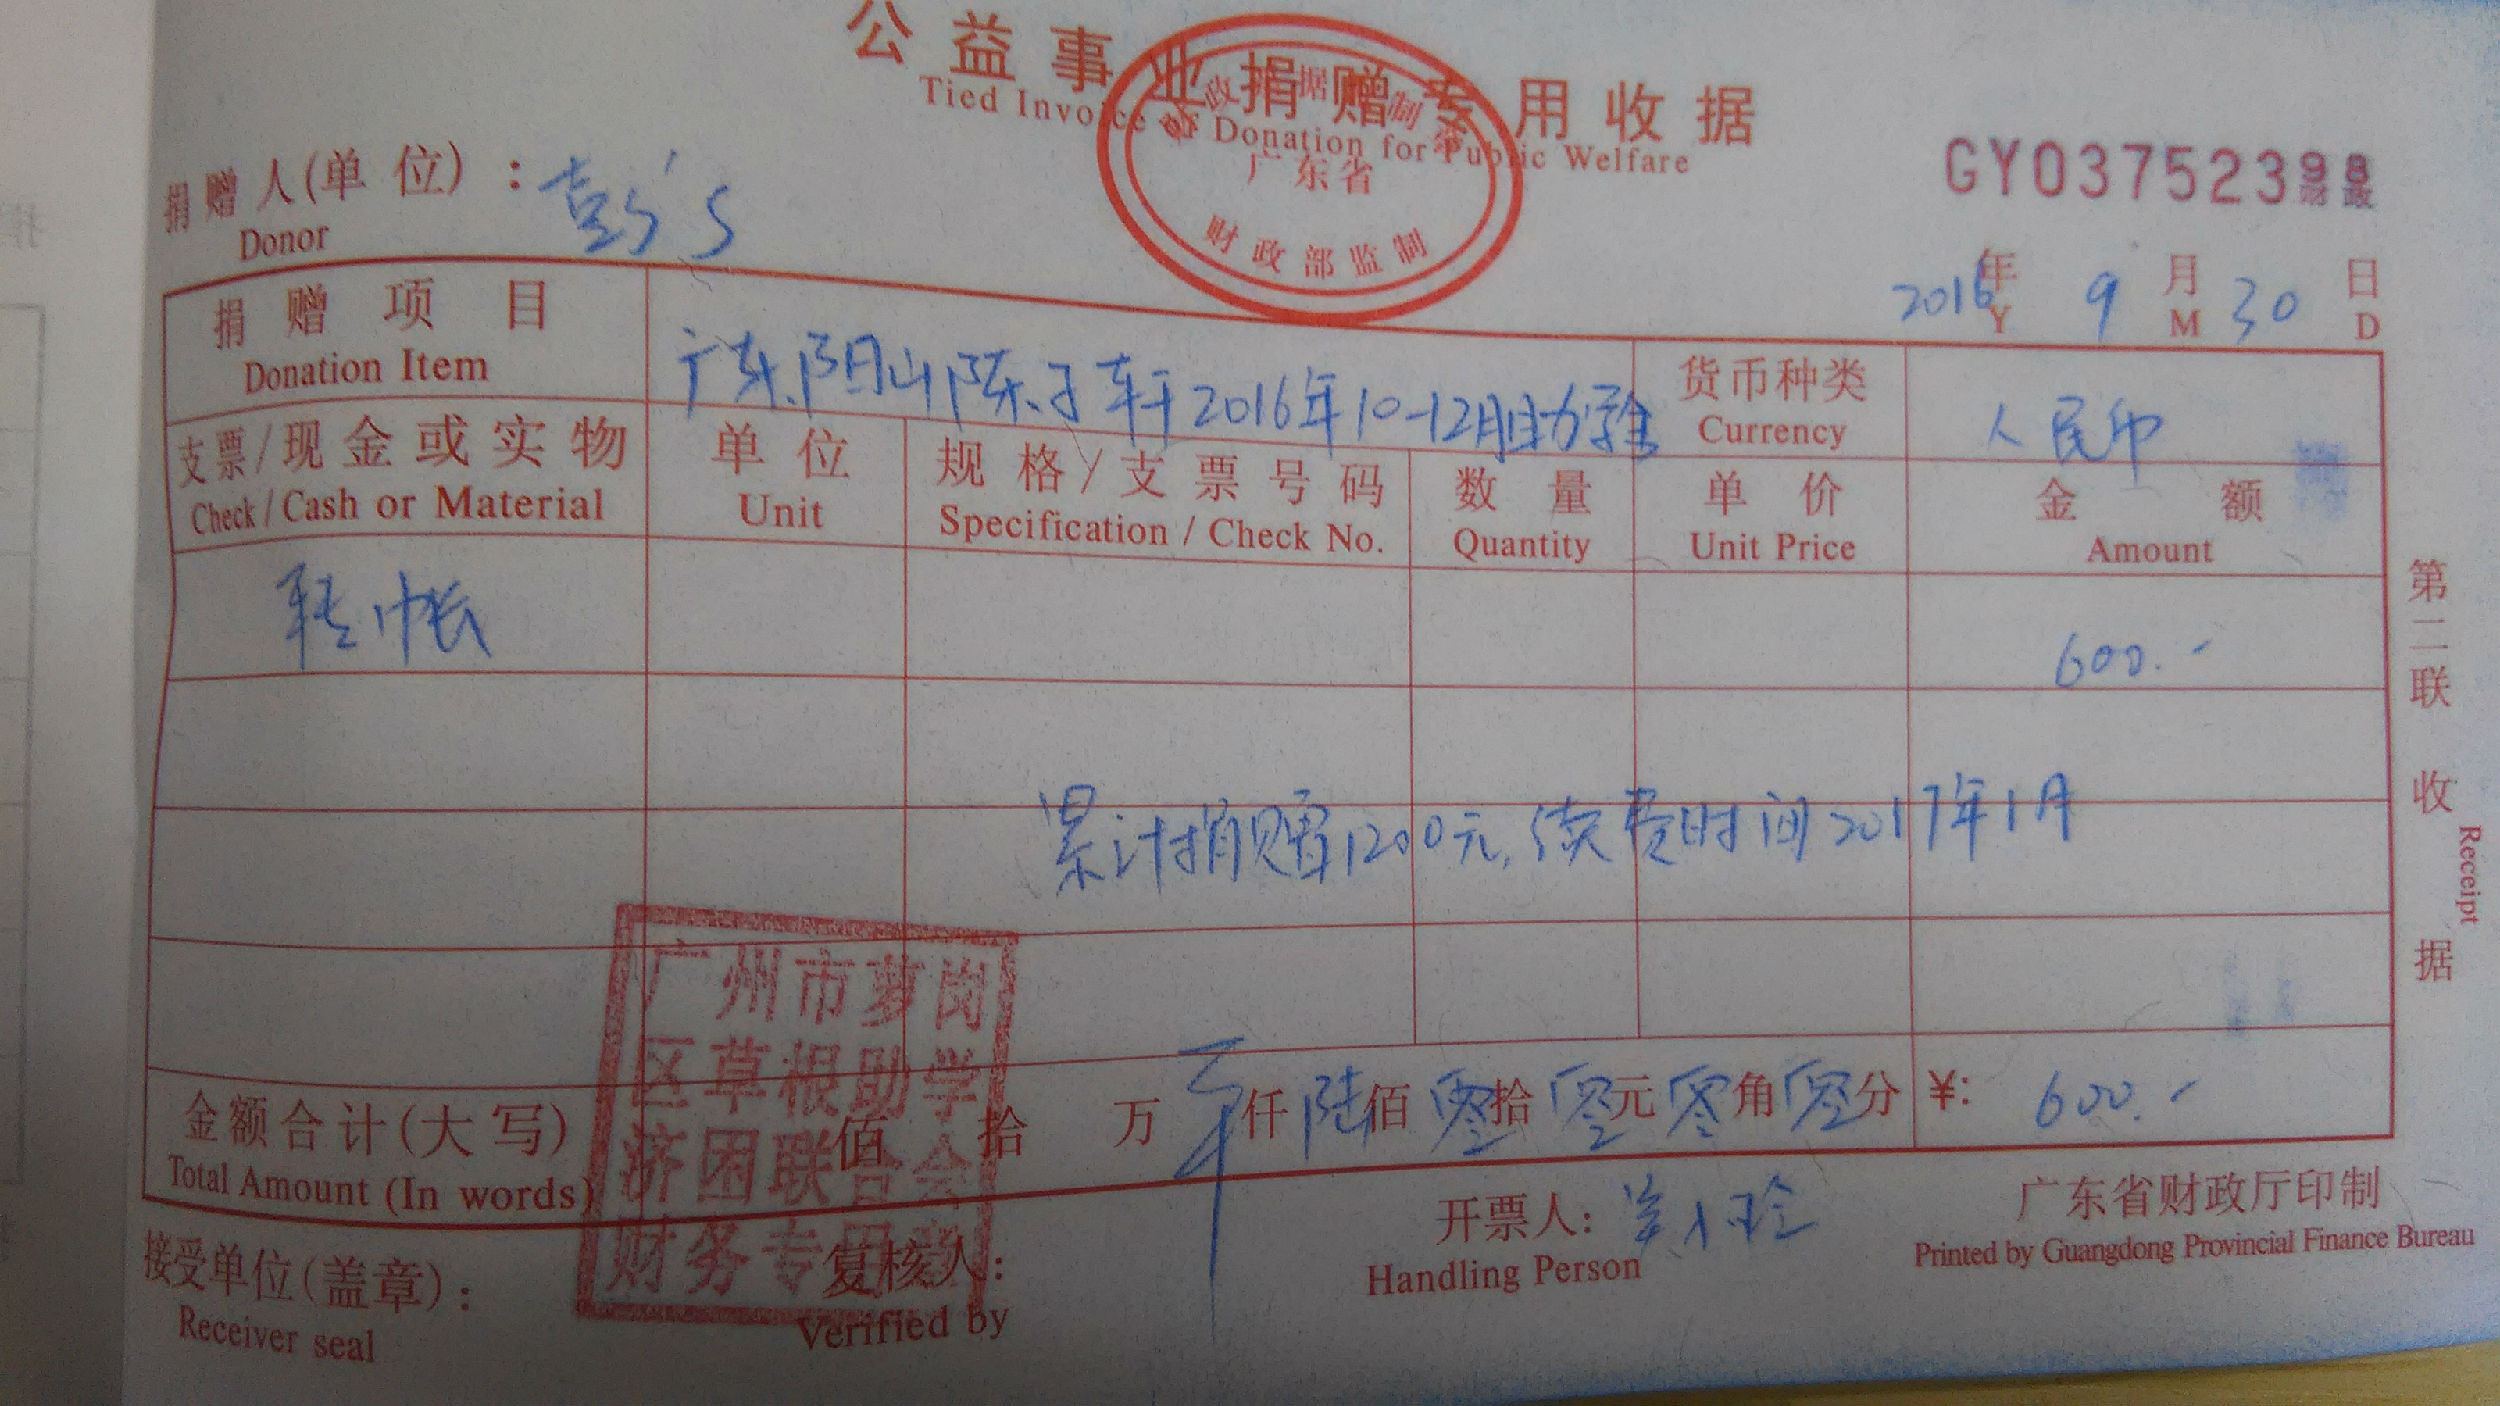 公益事业捐赠专用收据
Tied Invoice of Donation for Public Welfare
广东省
财政部监制
GY03752398
捐赠人(单位):
Donor
2016年 9月 30日
Y M D
捐赠项目
Donation Item
广东阳山陈子轩2016年10-12月助学金
货币种类
Currency
人民币
支票/现金或实物
Check / Cash or Material
单位
Unit
规格/支票号码
Specification / Check No.
数量
Quantity
单价
Unit Price
金额
Amount
转帐
600.-
累计捐赠1200元,续费时间2017年1月
金额合计(大写)
Total Amount (In words)
佰 拾 万 仟陆佰零拾零元零角零分
¥: 600.-
广州市萝岗
区草根助学
济困联合会
财务专用章
接受单位(盖章):
Receiver seal
复核人:
Verified by
开票人:
Handling Person
广东省财政厅印制
Printed by Guangdong Provincial Finance Bureau
第二联 收据
Receipt